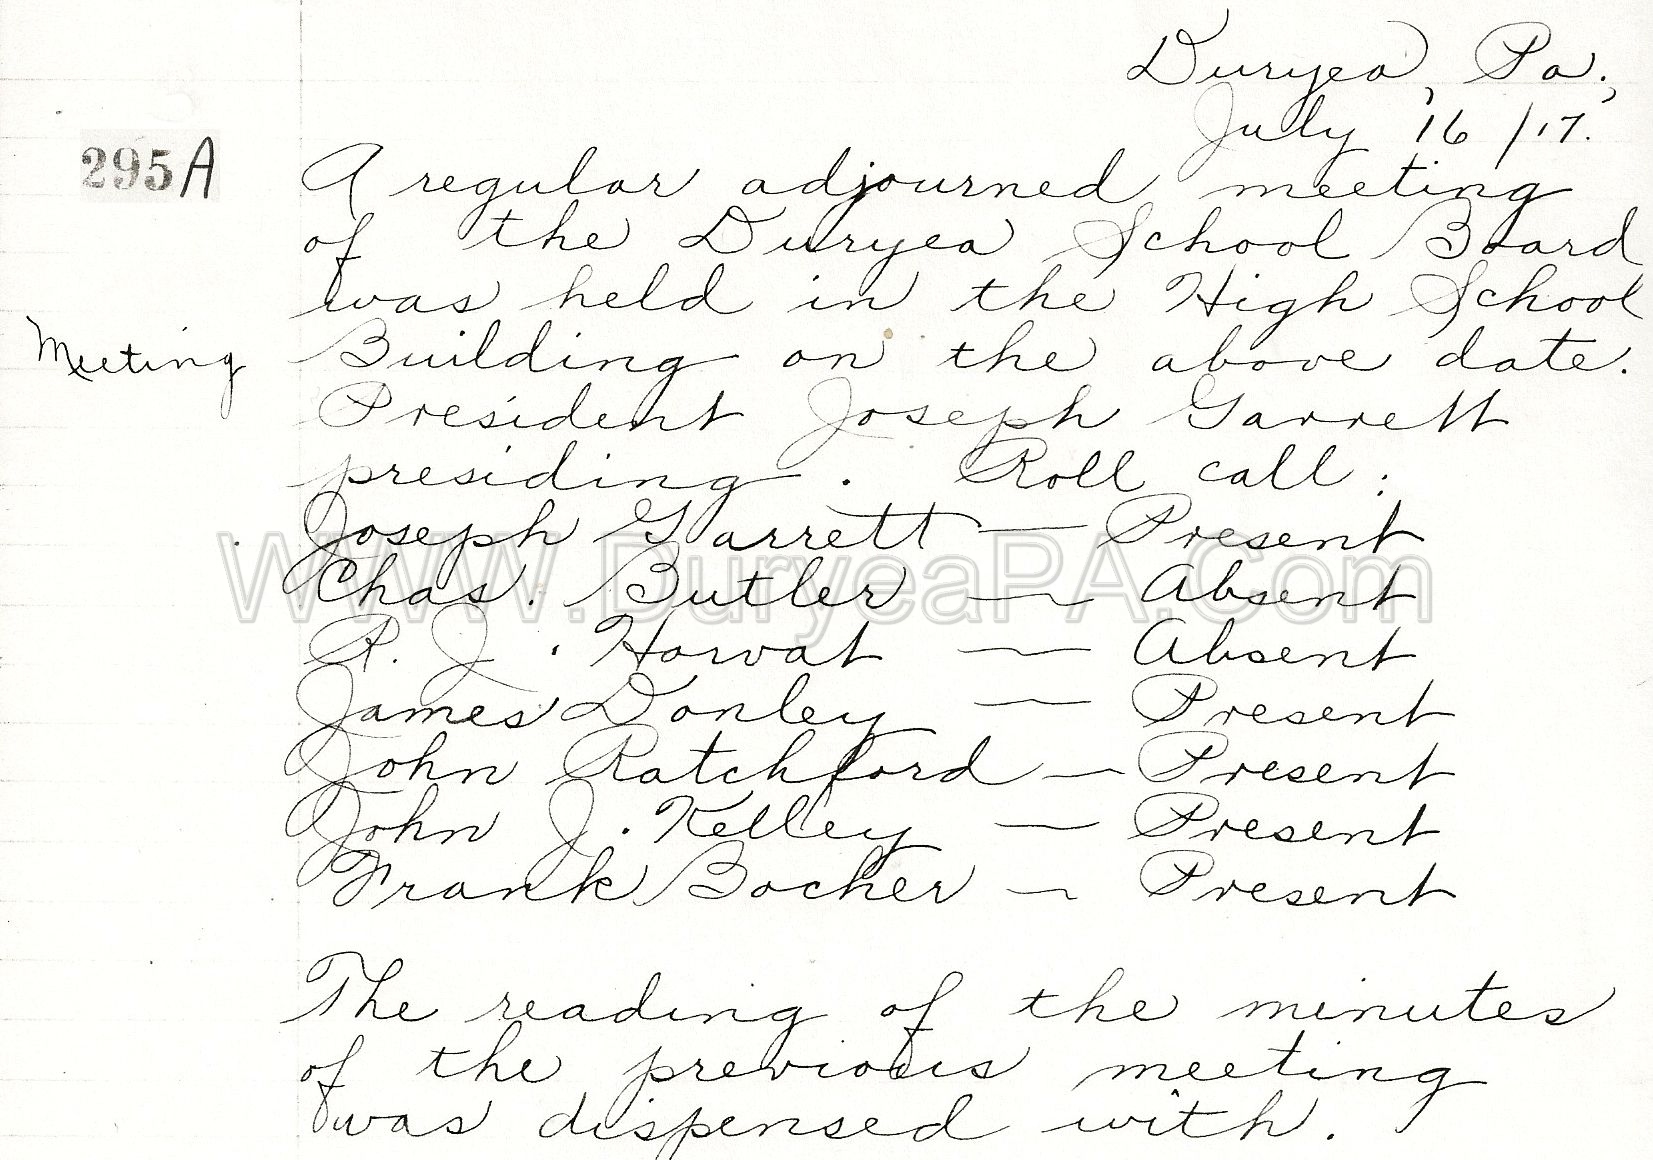 Duryea, Pa.,
July 16/17.
295A
A regular adjourned meeting
of the Duryea School Board
was held in the High School
Meeting
Building on the above date.
President Joseph Garrett
presiding. Roll call:
Joseph Garrett — Present
Chas. Butler — Absent
P. J. Horvat — Absent
James Donley — Present
John Ratchford — Present
John J. Kelley — Present
Frank Bocher — Present
WWW.DuryeaPA.Com
The reading of the minutes
of the previous meeting
was dispensed with.